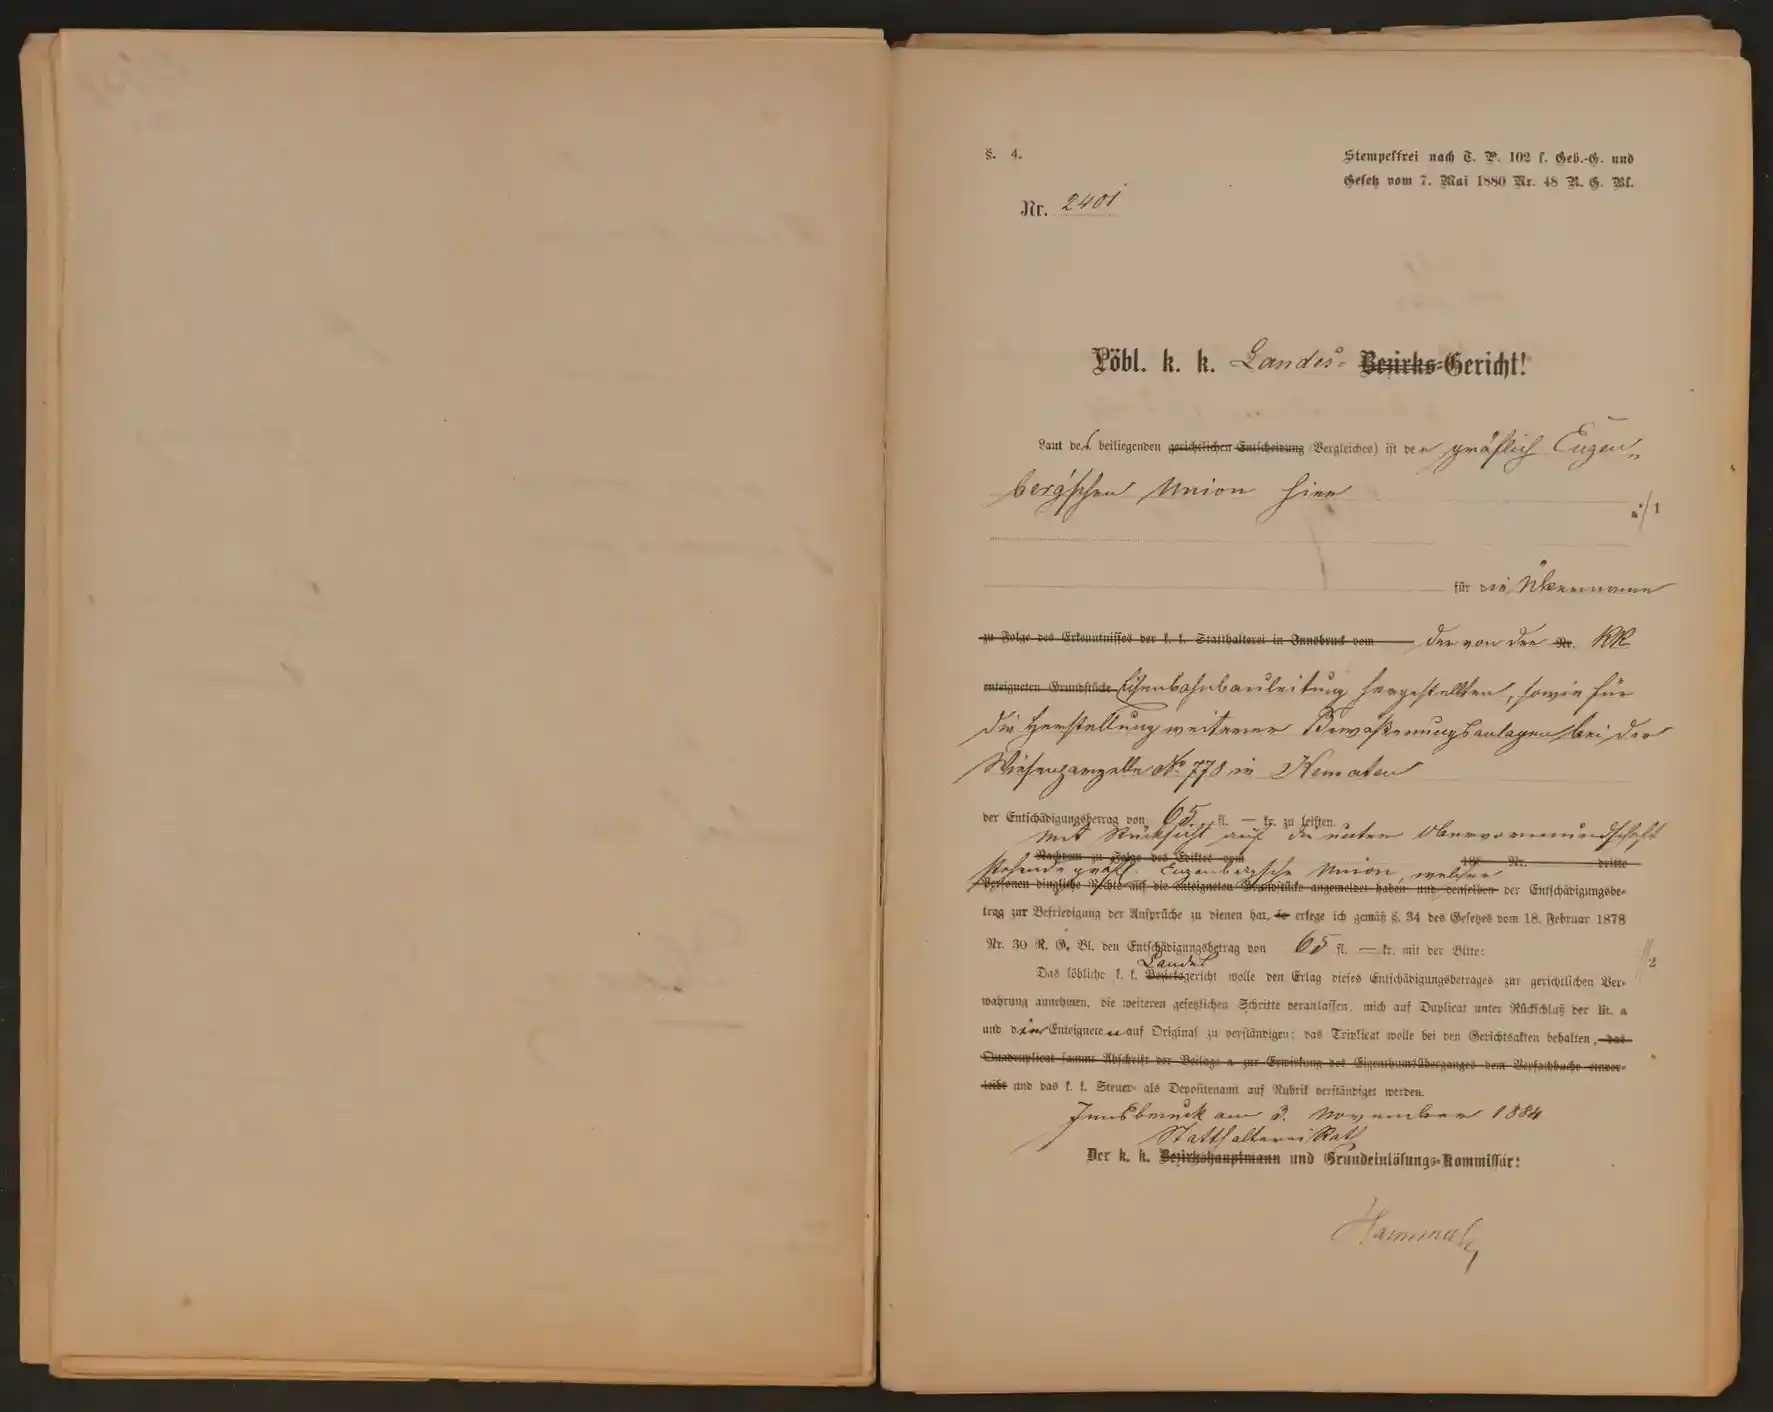 §. 4.
Stempelfrei nach T. P. 102 f. Geb.-G. und
Gesetz vom 7. Mai 1880 Nr. 48 R. G. Bl.
Nr. 2401
Löbl. k. k. Landes- Bezirks-Gericht!
Laut des beiliegenden gerichtlichen Entscheidung (Vergleiches) ist der gräflich Eugen-
berg'schen Union hier
a·/. 1
für die Übernahme
zu Folge des Erkenntnisses der k. k. Statthalterei in Innsbruck vom der von der Nr. KK
enteigneten Grundstücke Eisenbahnbauleitung hergestellten, sowie für
die Herstellung weiterer Bewaßerungsanlagen bei der
Wiesenparzelle No 778 in Kematen
der Entschädigungsbetrag von 65 fl. — kr. zu leisten.
Mit Rücksicht auf die unter Obervormundschaft
Nachdem zu Folge des Ediktes vom 18 Nr. dritte
stehende gräfl. Eugenbergsche Union, welcher
Personen dingliche Rechte auf die enteigneten Grundstücke angemeldet haben und denselben der Entschädigungsbe-
trag zur Befriedigung der Ansprüche zu dienen hat, so erlege ich gemäß §. 34 des Gesetzes vom 18. Februar 1878
Nr. 30 R. G. Bl. den Entschädigungsbetrag von 65 fl. — kr. mit der Bitte:
2
Landes
Das löbliche k. k. Bezirksgericht wolle den Erlag dieses Entschädigungsbetrages zur gerichtlichen Ver-
wahrung annehmen, die weiteren gesetzlichen Schritte veranlassen, mich auf Duplicat unter Rückschluß der lit. a
und den Enteigneten auf Original zu verständigen; das Triplicat wolle bei den Gerichtsakten behalten, das
Quadruplicat sammt Abschrift der Beilage a zur Erwirkung des Eigenthumsüberganges dem Verfachbuche einver-
leibt und das k. k. Steuer- als Depositenamt auf Rubrik verständiget werden.
Innsbruck am 3. November 1884
Statthalterei Rath
Der k. k. Bezirkshauptmann und Grundeinlösungs-Kommissär: